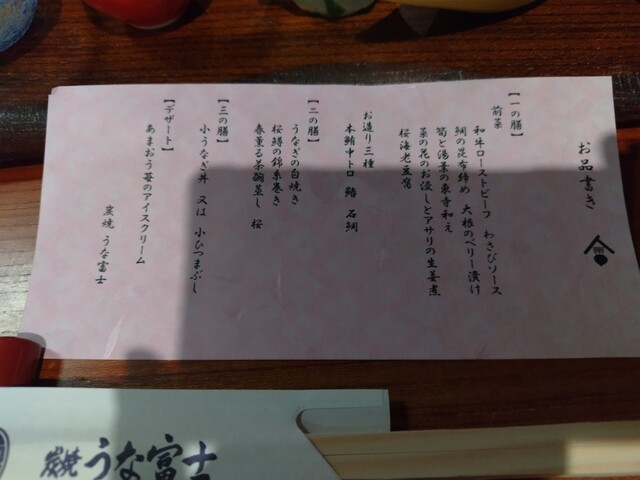 お品書き
【一の膳】
前菜
和牛ローストビーフ わさびソース
鯛の昆布締め 大根のベリー漬け
筍と湯葉の東寺和え
菜の花のお浸しとアサリの生姜煮
桜海老豆腐
お造り三種
本鮪中トロ 鰆 石鯛
【二の膳】
うなぎの白焼き
桜鱒の錦糸巻き
春薫る茶碗蒸し 桜
【三の膳】
小うなぎ丼 又は 小ひつまぶし
【デザート】
あまおう苺のアイスクリーム
炭焼 うな富士
炭焼 うな富士